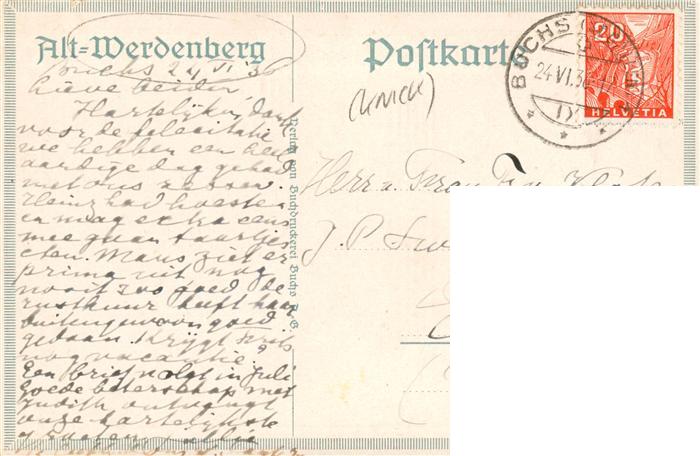 Alt=Werdenberg
Postkart
Buchs 24 VI '36
Lieve beiden
Hartelijk dank
voor de felicitatie
we hebben een heel
aardige dag gehad
met ons zessen.
Heinz had
en mag extra eens
mee gaan taartjes
eten. Mans ziet er
prima uit nog
nooit zoo goed de
rustkuur heeft haar
buitengewoon goed
gedaan. Krijgt
nog vacantie?
Een brief volgt in juli
goede beterschap met
Judith ontvangt
onze hartelijkste
groeten
Verlag von Buchdruckerei Buchs A.G.
BUCHS
24.VI.36
IX
20
HELVETIA
Herr u. Frau
J. P.